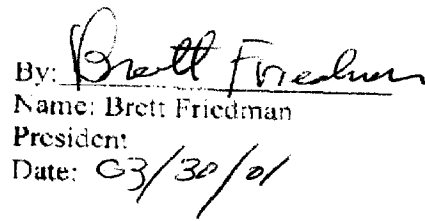 By: Brett Friedman
Name: Brett Friedman
President
Date: 03/30/01